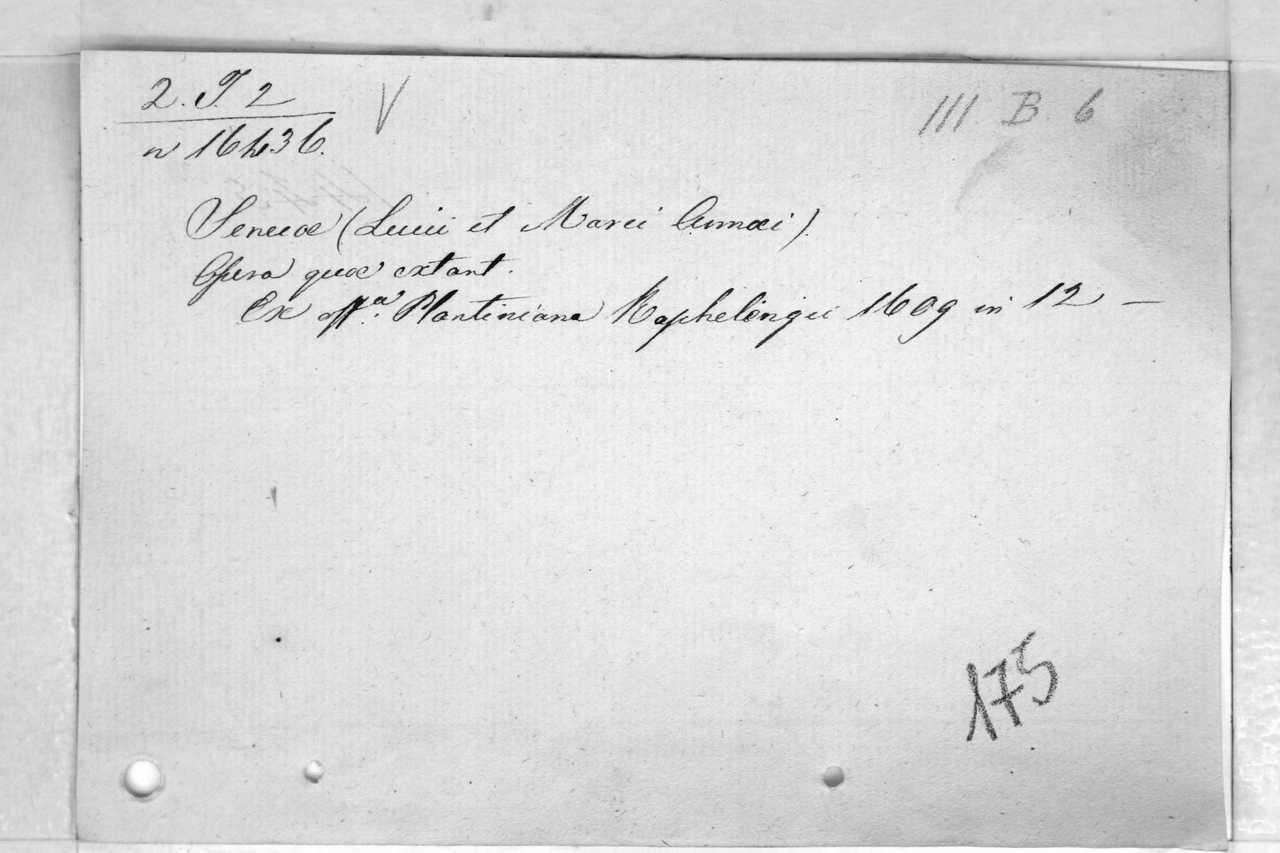 2. T. 2
V
III. B. 6
n 16436.
Senecae (Lucii et Marci Annaei).
Opera quae extant.
Ex offa. Plantiniana Raphelingii 1609 in 12 —
175